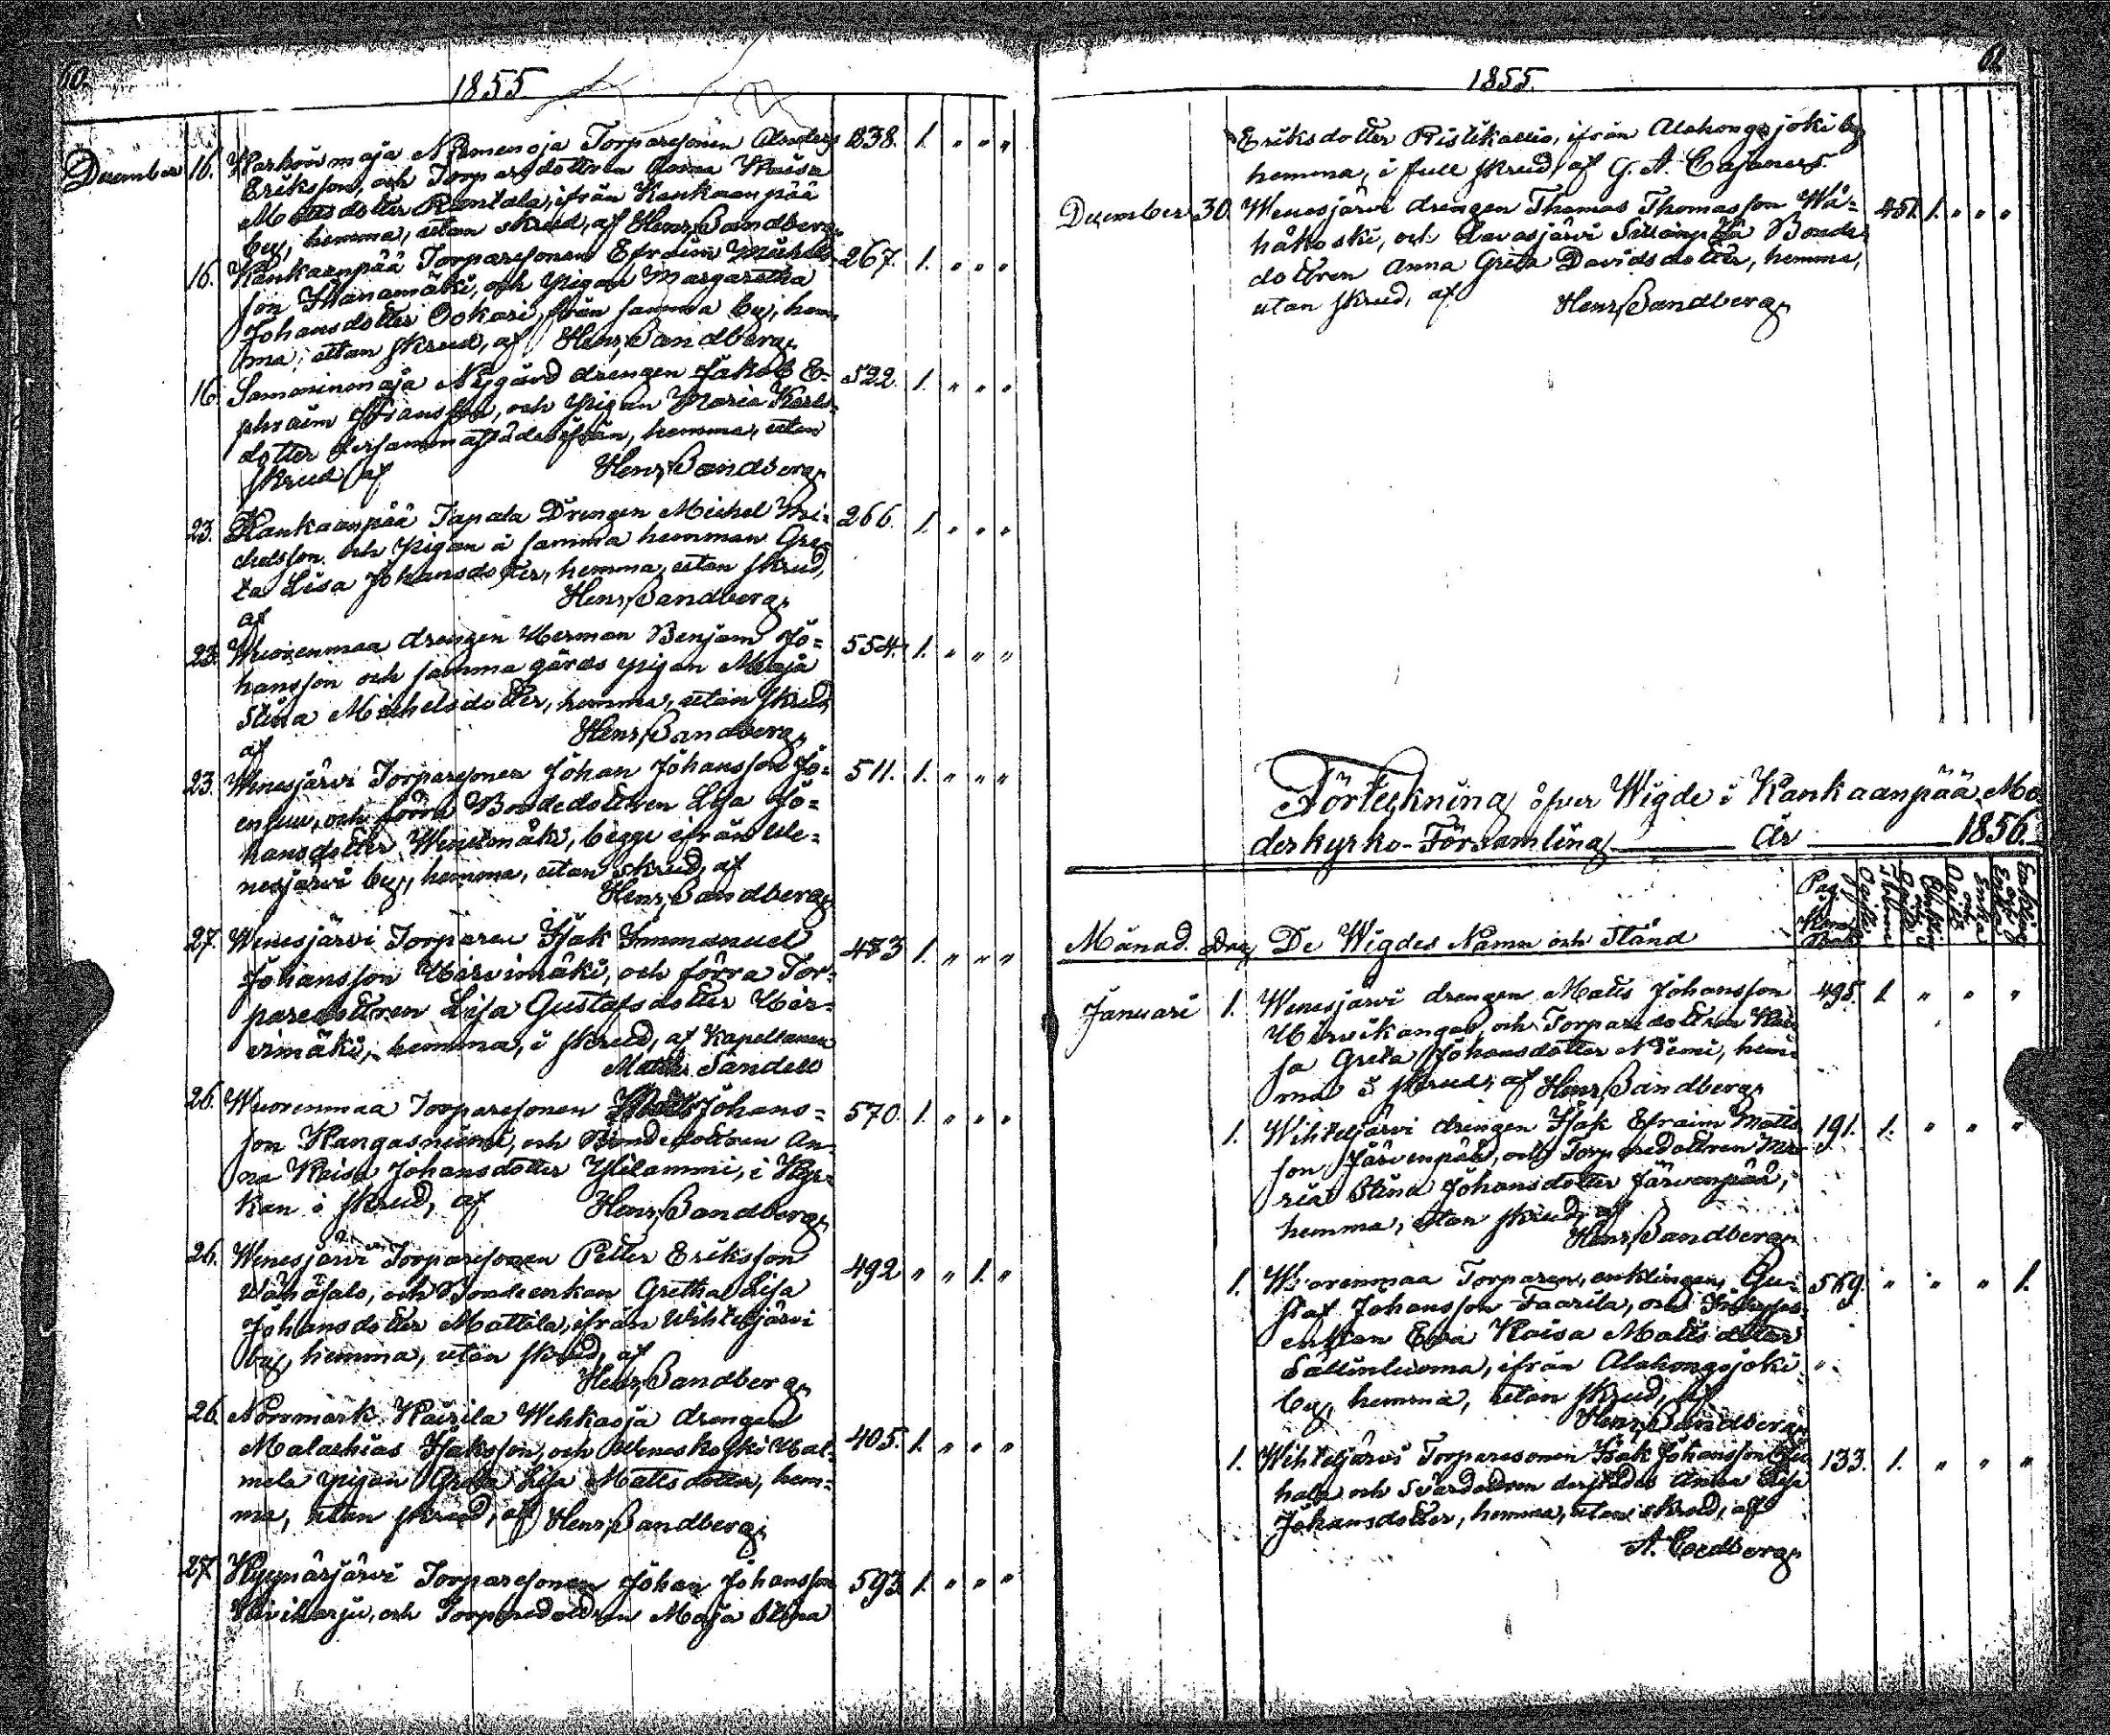 60.
1855.
December 16. Harhoismaja Niemenoja Torparesonen Anders 238. 1. " " "
Eriksson, och Torparedottren Anna Kaisa
Mattsdotter Rantala, ifrån Kankaanpää
by, hemma, utan skrud, af Henr. Sandberg.
16. Kankaanpää Torparesonen Efraim Michels- 267. 1. " " "
son Manamäki, och pigan Margaretha
Johansdotter Ookari, från samma by, hem-
ma, utan skrud, af Henr. Sandberg.
16. Samminmaja Nygård drengen Jakob E- 522. 1. " " "
phraim Fransson, och pigan Maria Karls-
dotter dersammastädes ifrån, hemma, utan
skrud af Henr. Sandberg.
23. Kankaanpää Tapala Drengen Michel Mi- 266. 1. " " "
chelsson och pigan å samma hemman Gre-
ta Lisa Johansdotter, hemma, utan skrud,
af Henr. Sandberg.
23. Wuorenmaa drengen Herman Benjam Jo= 554. 1. " " "
hansson och samma gårds pigan Maja
Stina Michelsdotter, hemma, utan skrud
af Henr. Sandberg.
23. Wenesjärvi Torparesonen Johan Johansson Jo= 511. 1. " " "
ensuu, och förra Bondedottren Lisa Jo=
hansdotter Wenesmäki, begge ifrån We=
nesjärvi by, hemma, utan skrud, af
Henr. Sandberg.
27. Wenesjärvi Torparen Isak Immanuel 483 1. " " "
Johansson Hirvimäki, och förra Tor-
paredottren Lisa Gustafsdotter Hir-
vimäki, hemma, i skrud, af Kapellanen
Matth. Sandell
26. Wuorenmaa Torparesonen Johans= 570. 1. " " "
son Kangasniemi, och Bondedottren An-
na Kaisa Johansdotter Ylilammi, i Kyr-
kan i skrud, af Henr. Sandberg.
26. Wenesjärvi Torparesonen Petter Eriksson 492 " " 1. "
Vähäsalo, och Bondeenkan Gretha Lisa
Johansdotter Mattila, ifrån Wihteljärvi
by, hemma, utan skrud, af
Henr. Sandberg.
26. Norrmark Kairila Wehkaoja drengen 405. 1. " " "
Malachias Isaksson, och Weneskoski Hal-
mela pigan Greta Lisa Mattsdotter, hem-
ma, utan skrud, af Henr. Sandberg.
27. Hynnärjärvi Torparesonen Johan Johansson 593 1. " " "
Kiviharju, och Torparedottren Maja Stina
61
1855.
Eriksdotter Ristikallio, ifrån Alahongsjoki by
hemma, i full skrud, af G. A. Cajanus.
December 30. Wenesjärvi drengen Thomas Thomasson Wä=
451. 1. " " "
häkoski, och Lavasjärvi Sillanpää Bonde-
dottren Anna Greta Davidsdotter, hemma,
utan skrud, af Henr. Sandberg.
Förteckning öfver Wigde i Kankaanpää Mo-
derkyrko-Församling År 1856.
Månad. Dag De Wigdes Namn och Stånd
Januari 1. Wenesjärvi drengen Matts Johansson 495. 1. " " "
Hirvikangas, och Torparedottren Kai-
sa Greta Johansdotter Niemi, hem-
ma i skrud, af Henr. Sandberg.
1. Wihteljärvi drengen Isak Efraim Matts- 191. 1. " " "
son Järvenpää, och Torparedottren Ma-
ria Stina Johansdotter Järvenpää,
hemma, utan skrud, af
Henr. Sandberg.
1. Wuorenmaa Torparen, enklingen Gu- 569. " " " 1.
staf Johansson Taarila, och
enkan Eva Kaisa Mattsdotter
Sattinluoma, ifrån Alahongsjoki
by, hemma, utan skrud, af
Henr. Sandberg.
1. Wihteljärvi Torparesonen Isak Johansson 133. 1. " " "
och dottren derstädes Anna Lisa
Johansdotter, hemma, utan skrud, af
A. Cedberg.